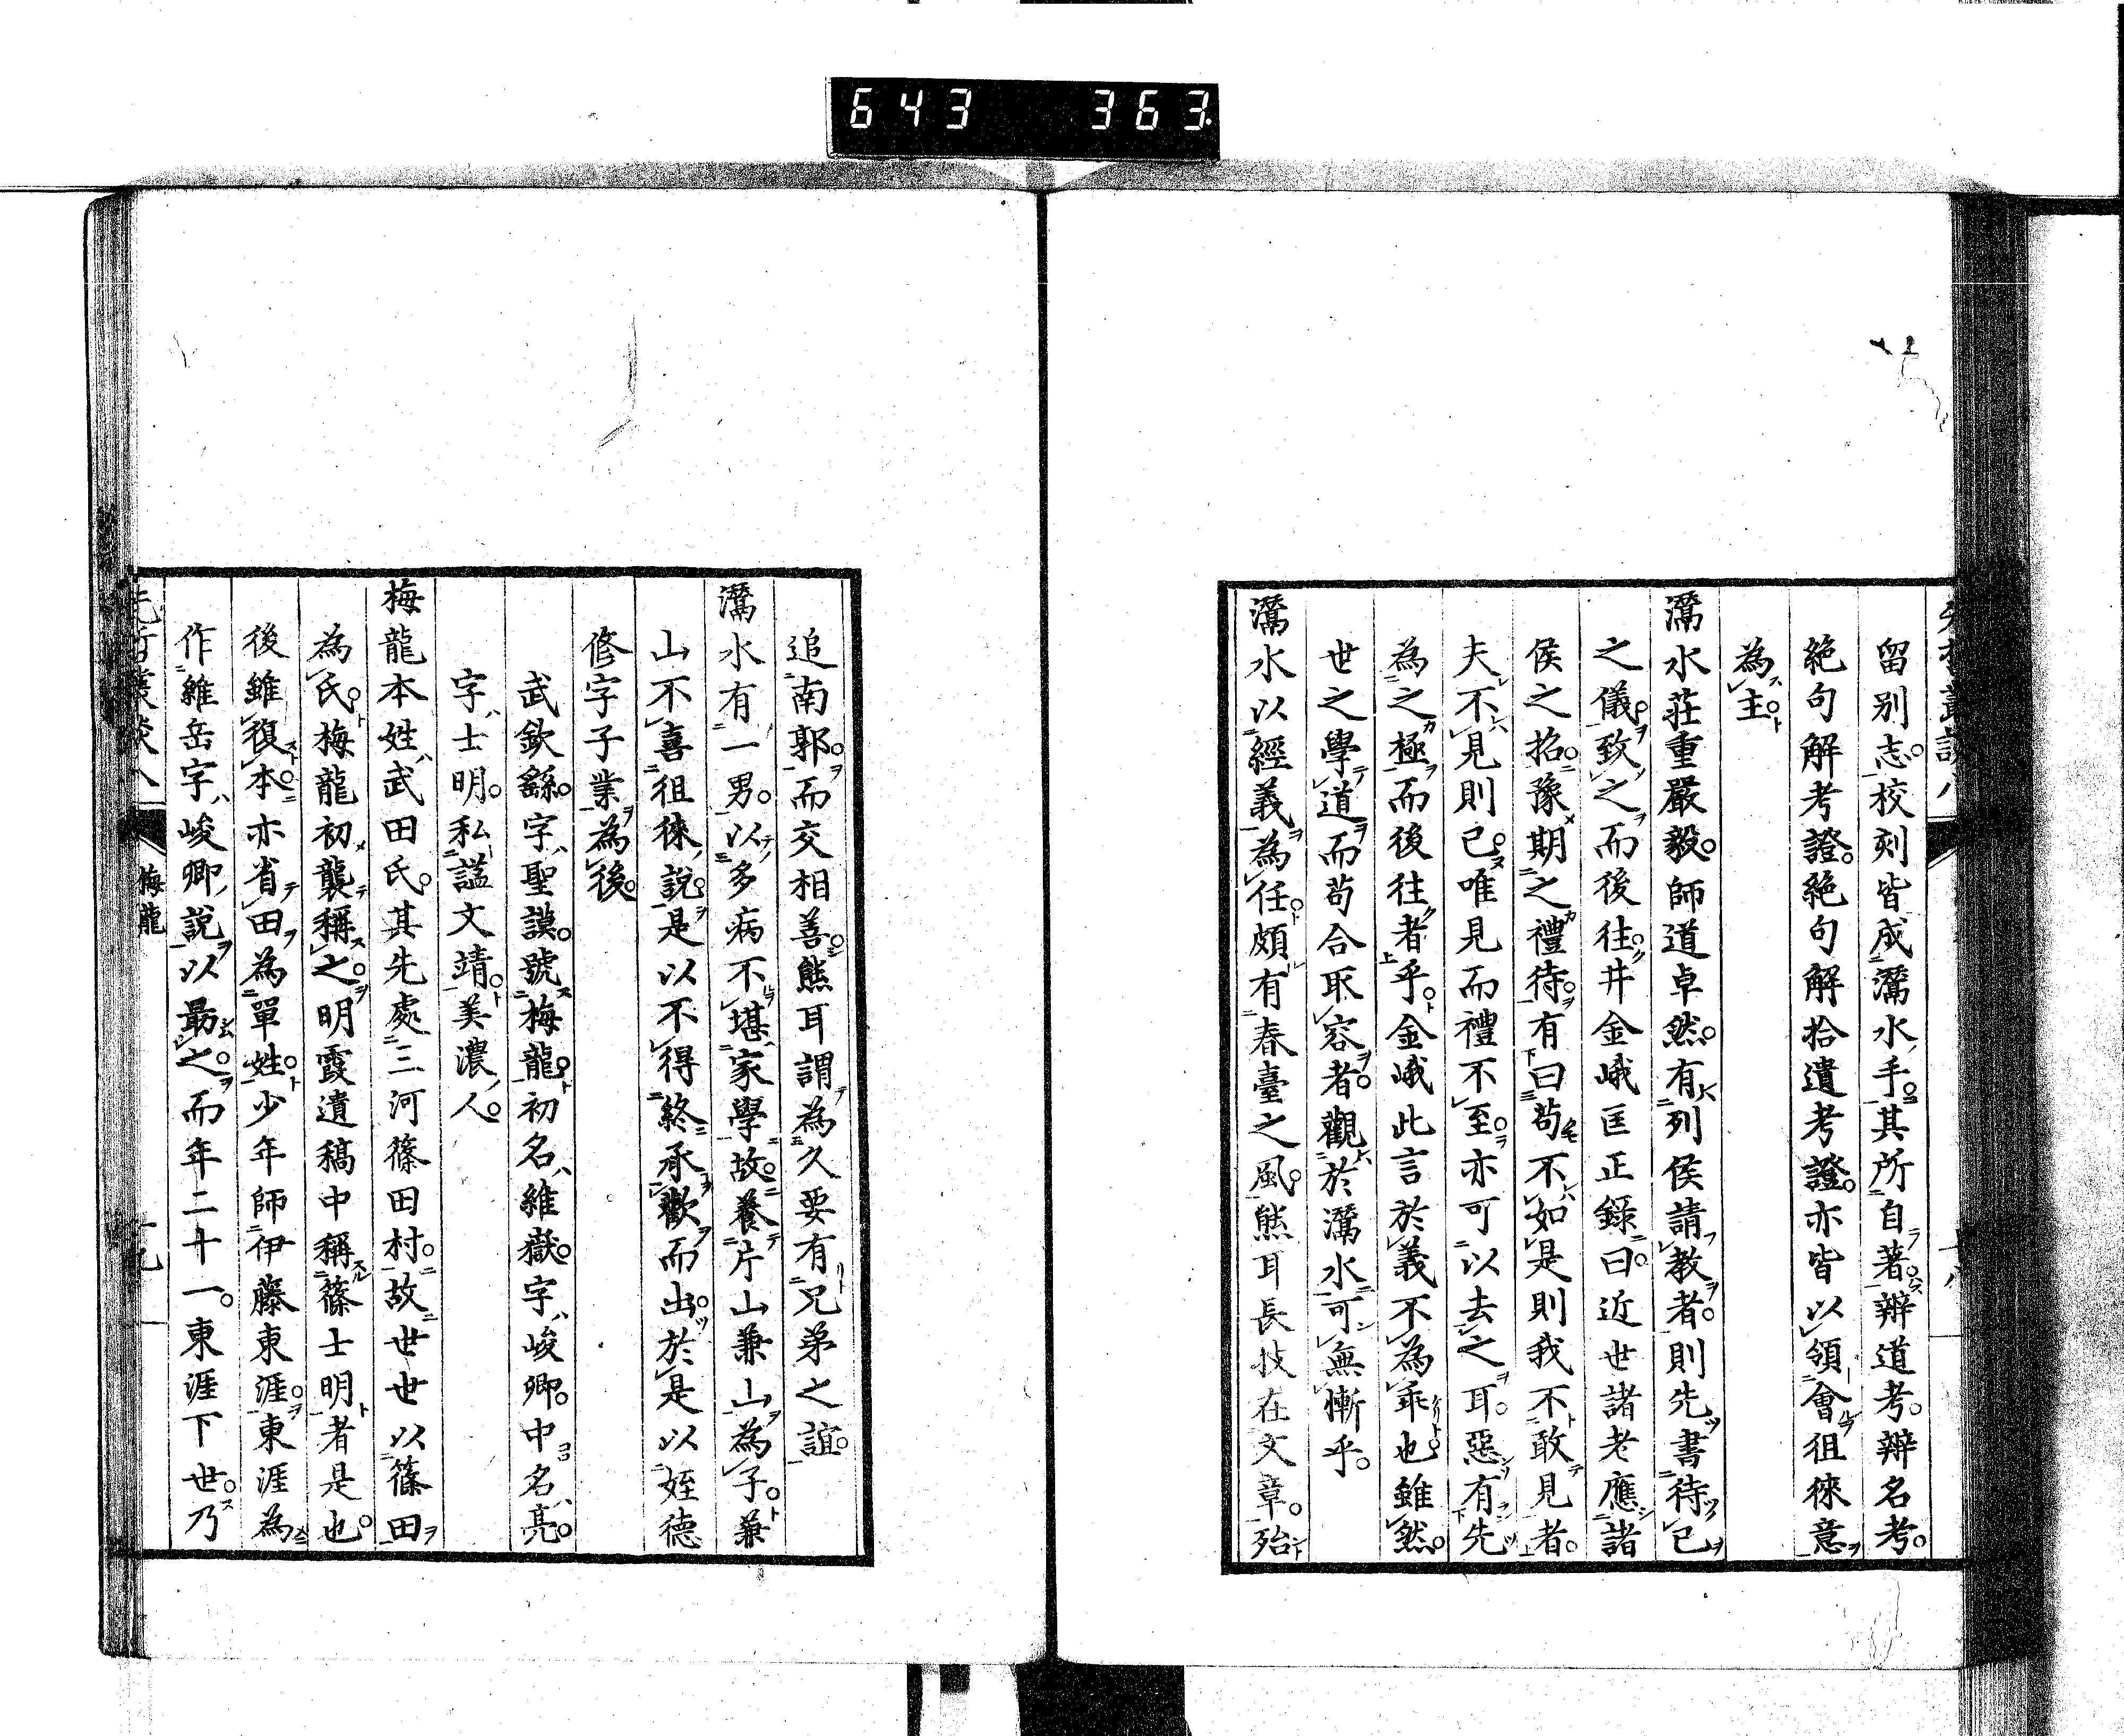 643 363
留別志。校刻皆成灊水手。其所自著。辨道考。辨名考。
絶句解考證。絶句解拾遺考證。亦皆以領會徂徠意
為主。
灊水莊重嚴毅。師道卓然。有列侯請教者。則先書待己
之儀。致之而後往。井金峨匡正錄曰。近世諸老應諸
侯之招。豫期之禮待。有曰苟不如是則我不敢見者。
夫不見則已。唯見而禮不至。亦可以去之耳。惡有先
為之極而後往者乎。金峨此言於義不為乖也。雖然。
世之學道而苟合取容者。觀於灊水。可無慚乎。
灊水以經義為任。頗有春臺之風。熊耳長技在文章。殆
追南郭。而交相善。熊耳謂為久要有兄弟之誼。
灊水有一男。以多病不堪家學。故養片山兼山為子。兼
山不喜徂徠說。是以不得終承歡而出。於是以姪德
修字子業為後。
武欽繇。字聖謨。號梅龍。初名維嶽。字峻卿。中名亮。
字士明。私諡文靖。美濃人。
梅龍本姓武田氏。其先處三河篠田村。故世世以篠田
為氏。梅龍初襲稱之。明霞遺稿中稱篠士明者是也。
後雖復本。亦省田為單姓。少年師伊藤東涯。東涯為
作維岳字峻卿說。以最之。而年二十一。東涯下世。乃
梅龍